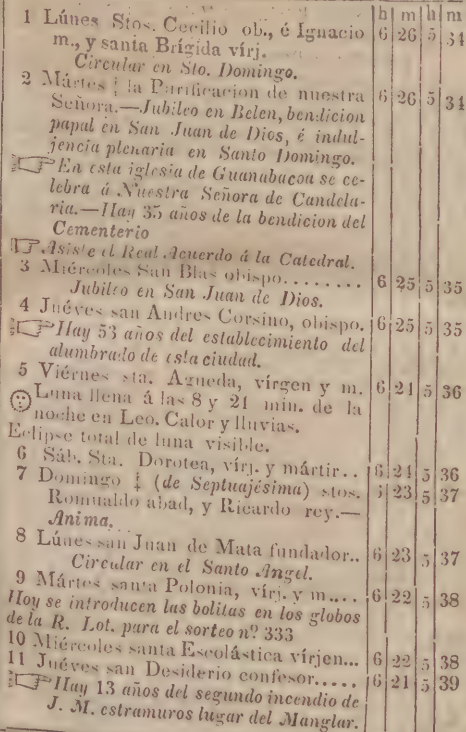 h m h m
1 Lúnes Stos. Cecilio ob., é Ignacio 6 26 5 34
m., y santa Brígida vírj.
Circular en Sto. Domingo.
2 Mártes ‡ la Purificacion de nuestra 6 26 5 34
Señora.—Jubileo en Belen, bendicion
papal en San Juan de Dios, é indul-
jencia plenaria en Santo Domingo.
☞ En esta iglesia de Guanabacoa se ce-
lebra á Nuestra Señora de Candela-
ria.—Hay 35 años de la bendicion del
Cementerio
☞ Asiste el Real Acuerdo á la Catedral.
3 Miércoles San Blas obispo........ 6 25 5 35
Jubileo en San Juan de Dios.
4 Juéves san Andres Corsino, obispo. 6 25 5 35
☞ Hay 53 años del establecimiento del
alumbrado de esta ciudad.
5 Viérnes sta. Agueda, vírgen y m. 6 24 5 36
Luna llena á las 8 y 21 min. de la
noche en Leo. Calor y lluvias.
Eclipse total de luna visible.
6 Sáb. Sta. Dorotea, vírj. y mártir.. 6 24 5 36
7 Domingo ‡ (de Septuajésima) stos. 6 23 5 37
Romualdo abad, y Ricardo rey.—
Anima.
8 Lúnes san Juan de Mata fundador.. 6 23 5 37
Circular en el Santo Angel.
9 Mártes santa Polonia, vírj. y m.... 6 22 5 38
Hoy se introducen las bolitas en los globos
de la R. Lot. para el sorteo nº 333
10 Miércoles santa Escolástica vírjen... 6 22 5 38
11 Juéves san Desiderio confesor..... 6 21 5 39
☞ Hay 13 años del segundo incendio de
J. M. estramuros lugar del Manglar.